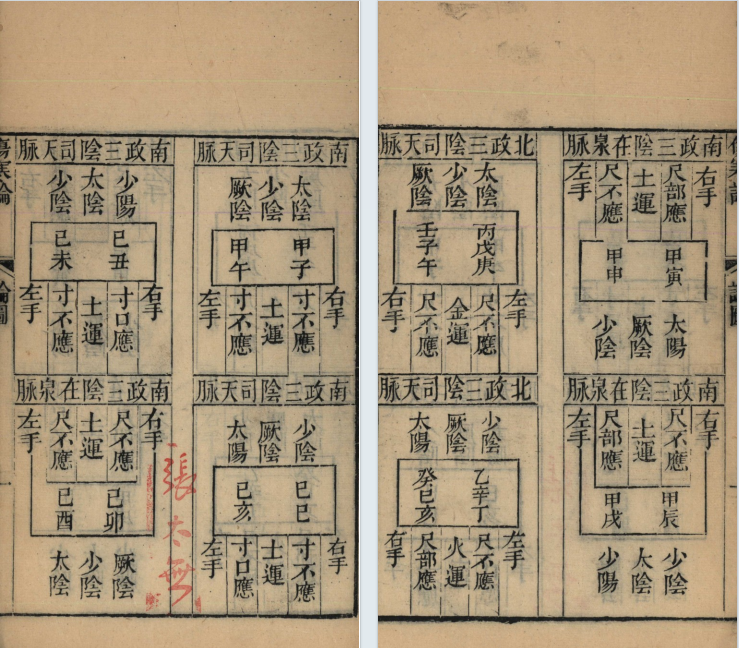 南政三陰在泉脈
右手
尺部應
土運
尺不應
左手
甲寅
甲申
太陽
厥陰
少陰
南政三陰在泉脈
右手
尺不應
土運
尺部應
左手
甲辰
甲戌
少陰
太陰
少陽
北政三陰司天脈
太陰
少陰
厥陰
丙戊庚
壬子午
左手
尺不應
金運
尺不應
右手
北政三陰司天脈
少陰
厥陰
太陽
乙辛丁
癸巳亥
左手
尺不應
火運
尺部應
右手
南政三陰司天脈
太陰
少陰
厥陰
甲子
甲午
右手
寸不應
土運
寸不應
左手
南政三陰司天脈
少陰
厥陰
太陽
己巳
己亥
右手
寸不應
土運
寸口應
左手
張太無
南政三陰司天脈
少陽
太陰
少陰
己丑
己未
右手
寸口應
土運
寸不應
左手
南政三陰在泉脈
右手
尺不應
土運
尺不應
左手
己卯
己酉
厥陰
少陰
太陰
傷寒論
論圖